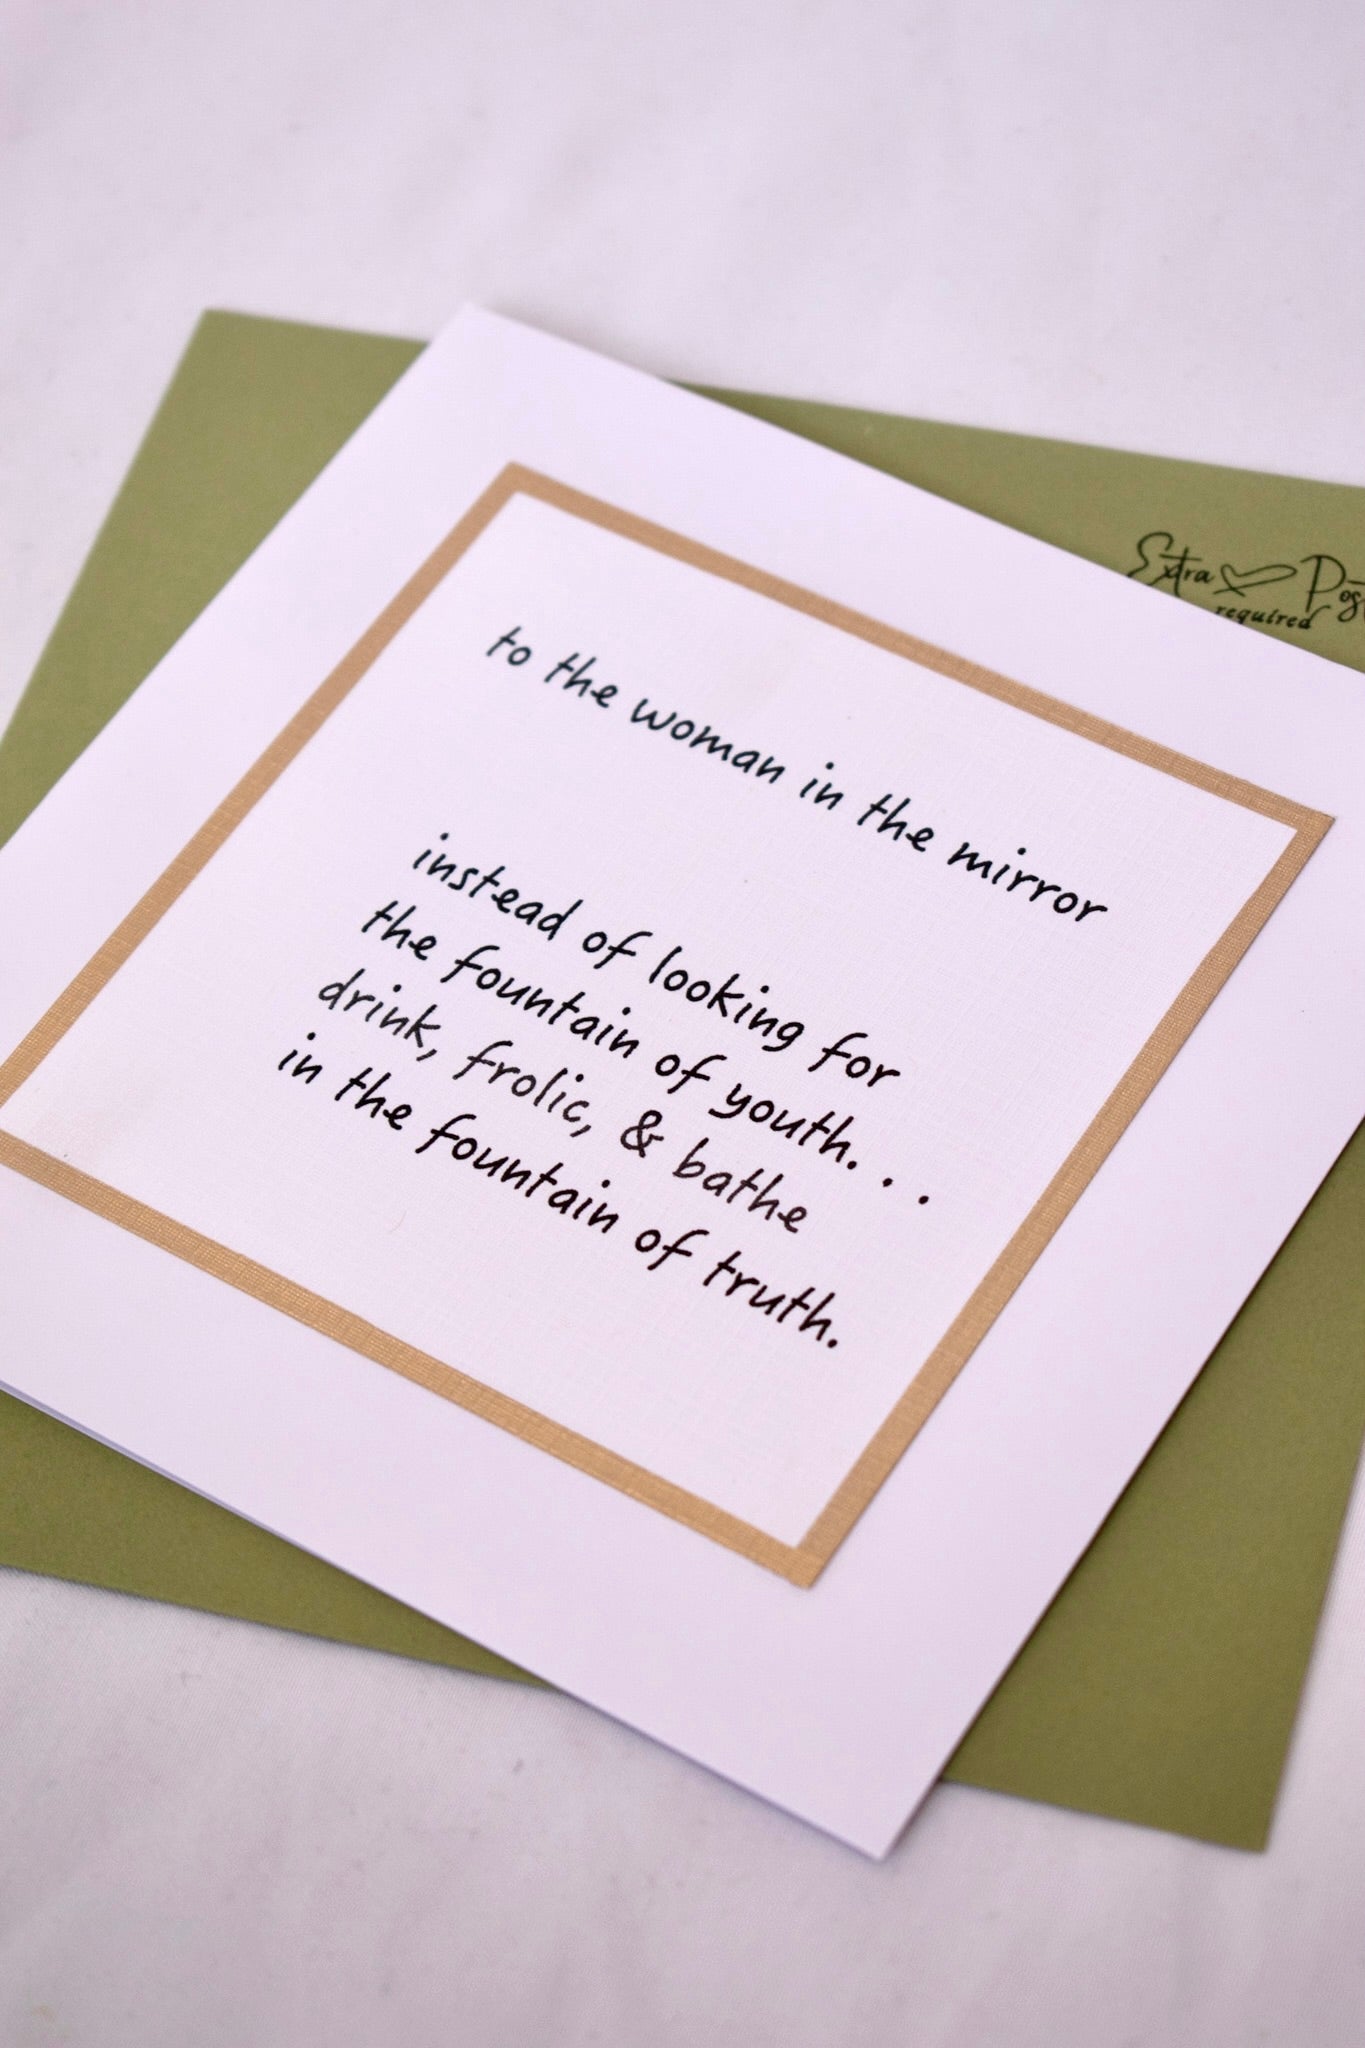 to the woman in the mirror
instead of looking for
the fountain of youth. . .
drink, frolic, & bathe
in the fountain of truth.
Extra
required